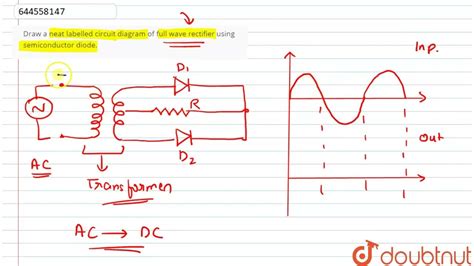 644558147
Draw a neat labelled circuit diagram of full wave rectifier using
semiconductor diode.
Inp.
D1
R
D2
Out
AC
Transformen
AC → DC
doubtnut